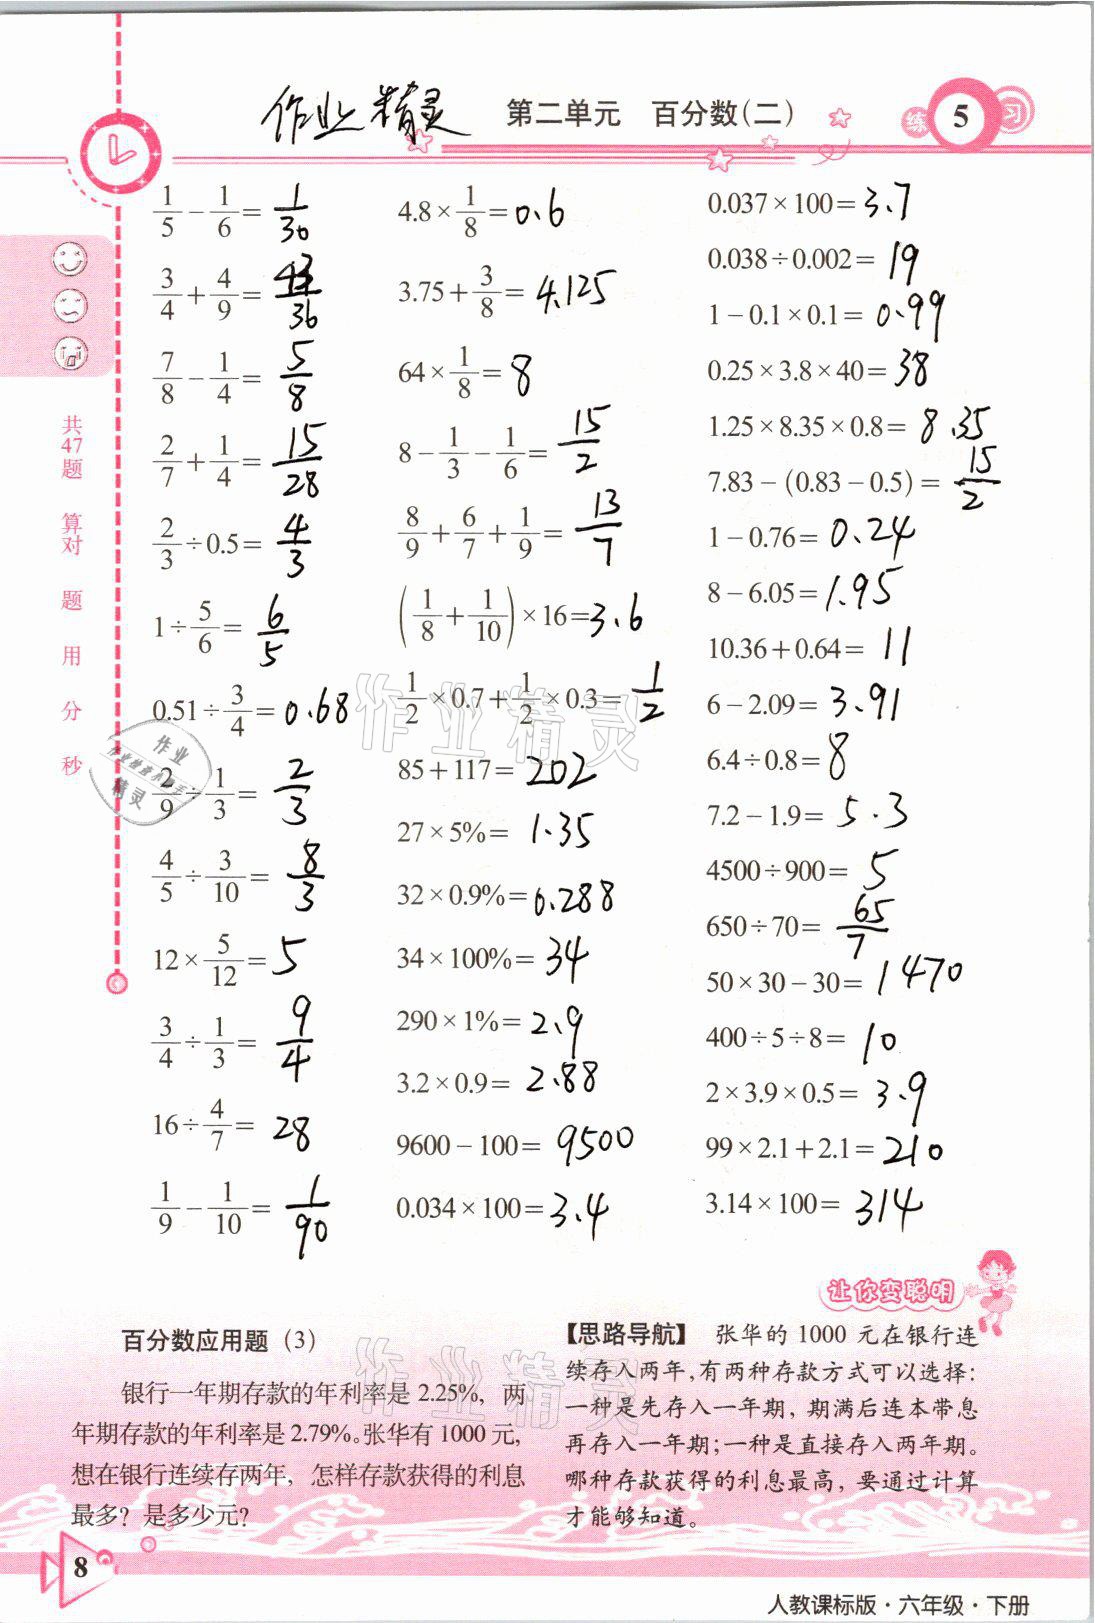 作业精灵 第二单元 百分数(二) 练 5 习
1/5 - 1/6 = 1/30
3/4 + 4/9 = 43/36
7/8 - 1/4 = 5/8
2/7 + 1/4 = 15/28
2/3 ÷ 0.5 = 4/3
1 ÷ 5/6 = 6/5
0.51 ÷ 3/4 = 0.68
2/9 ÷ 1/3 = 2/3
4/5 ÷ 3/10 = 8/3
12 × 5/12 = 5
3/4 ÷ 1/3 = 9/4
16 ÷ 4/7 = 28
1/9 - 1/10 = 1/90
4.8 × 1/8 = 0.6
3.75 + 3/8 = 4.125
64 × 1/8 = 8
8 - 1/3 - 1/6 = 15/2
8/9 + 6/7 + 1/9 = 13/7
(1/8 + 1/10) × 16 = 3.6
1/2 × 0.7 + 1/2 × 0.3 = 1/2
85 + 117 = 202
27 × 5% = 1.35
32 × 0.9% = 0.288
34 × 100% = 34
290 × 1% = 2.9
3.2 × 0.9 = 2.88
9600 - 100 = 9500
0.034 × 100 = 3.4
0.037 × 100 = 3.7
0.038 ÷ 0.002 = 19
1 - 0.1 × 0.1 = 0.99
0.25 × 3.8 × 40 = 38
1.25 × 8.35 × 0.8 = 8.35
7.83 - (0.83 - 0.5) = 15/2
1 - 0.76 = 0.24
8 - 6.05 = 1.95
10.36 + 0.64 = 11
6 - 2.09 = 3.91
6.4 ÷ 0.8 = 8
7.2 - 1.9 = 5.3
4500 ÷ 900 = 5
650 ÷ 70 = 65/7
50 × 30 - 30 = 1470
400 ÷ 5 ÷ 8 = 10
2 × 3.9 × 0.5 = 3.9
99 × 2.1 + 2.1 = 210
3.14 × 100 = 314
共47题 算对 题 用 分 秒
作业精灵
作业精灵
让你变聪明
百分数应用题(3)
银行一年期存款的年利率是 2.25%, 两
年期存款的年利率是 2.79%。张华有 1000 元,
想在银行连续存两年, 怎样存款获得的利息
最多? 是多少元?
【思路导航】 张华的 1000 元在银行连
续存入两年,有两种存款方式可以选择:
一种是先存入一年期, 期满后连本带息
再存入一年期;一种是直接存入两年期。
哪种存款获得的利息最高, 要通过计算
才能够知道。
作业精灵
8
人教课标版·六年级·下册